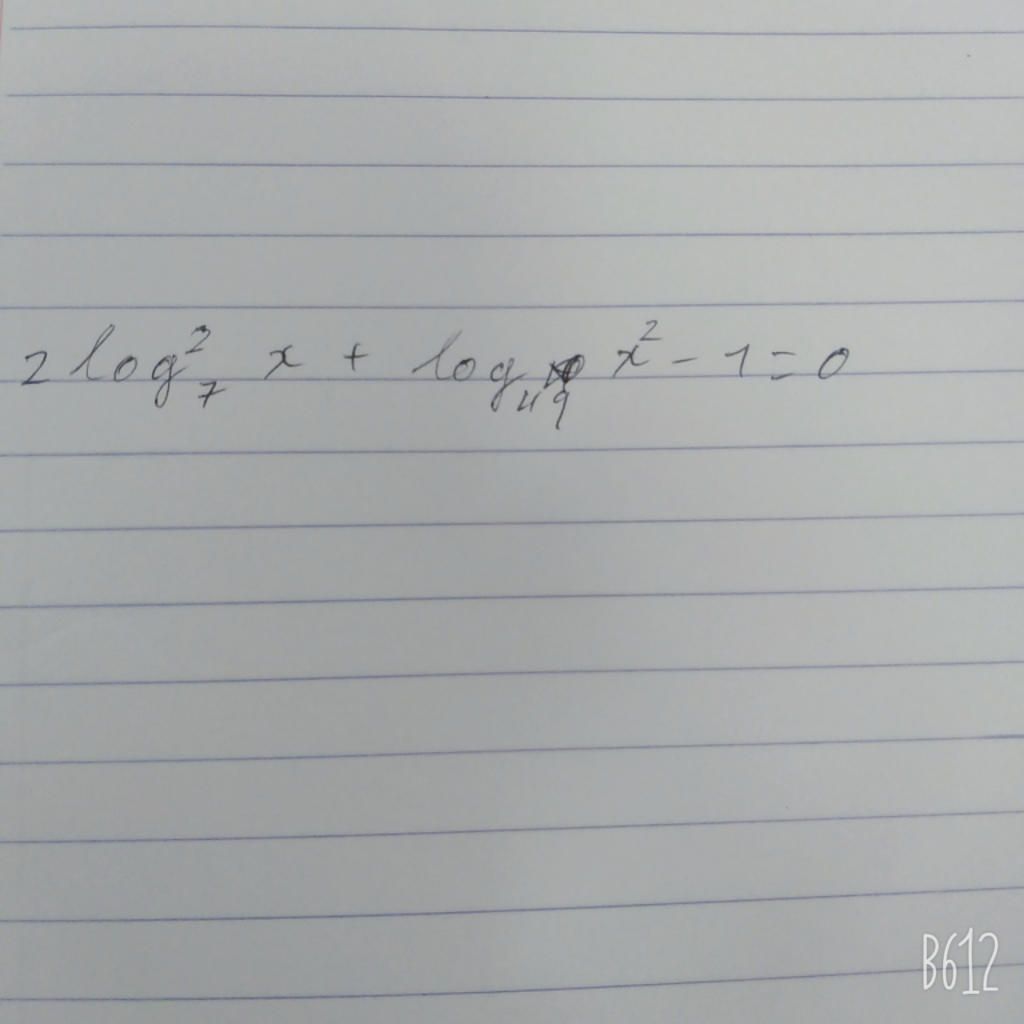 2 log²₇ x + log₄₉ x² - 1 = 0
B612